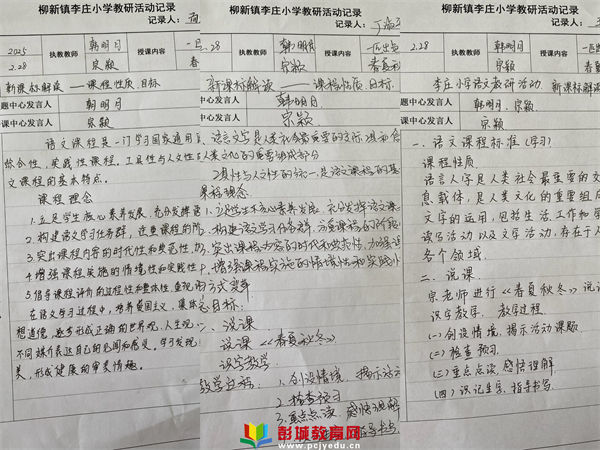 柳新镇李庄小学教研活动记录
记录人：
2025
2.28
执教教师
韩明月
宗颖
授课内容
新课标解读——课程性质.目标
题中心发言人
韩明月
课中心发言人
宗颖
语文课程是一门学习国家通用
综合性、实践性课程。工具性与人文性
文课程的基本特点。
课程理念
1.立足学生核心素养发展，充分发挥语
2.构建语文学习任务群，注重课程的阶
3.突出课程内容的时代性和典范性，加
4.增强课程实施的情境性和实践性
5.倡导课程评价的过程性和整体性，重视
在语文学习过程中，培养爱国主义、集体
想道德，逐步形成正确的世界观、人生观
不同媒介表达自己的见闻和感受。学习发现
美，形成健康的审美情趣。
柳新镇李庄小学教研活动记录
记录人：
2.28
执教教师
韩明月
宗颖
授课内容
春夏秋
新课标解读——课程性质.目标
中心发言人
韩明月
中心发言人
宗颖
语言文字是人类社会最重要的交际
人类文化的重要组成部分
性与人文性的统一，是语文课程的基
课程理念
1.立足学生核心素养发展，充分发挥语文课
2.构建语文学习任务群，注重课程的阶段
3.突出课程内容的时代性和典范性，加强
增强课程实施的情境性和实践性
方式变革
总目标：
二、说课
说课《春夏秋冬》
识字教学
教学过程：1.创设情境，揭示活
2.检查预习
3.重点点读，感悟理解
柳新镇李庄小学教研活动记录
记录人：
2.28
执教教师
韩明月
宗颖
授课内容
李庄小学语文教研活动 新课标解读
题中心发言人
韩明月、宗颖
课中心发言人
宗颖
一、语文课程标准（学习）
课程性质
语言文字是人类社会最重要的交
息载体，是人类文化的重要组成
文字的运用，包括生活、工作和学
读写活动以及文学活动，存在于人
各个领域
二、说课
宗老师进行《春夏秋冬》说
识字教学、教学过程
（一）创设情境，揭示活动课题
（二）检查预习
（三）重点点读，感悟理解
（四）识记生字，指导书写
彭城教育网
www.pcjyedu.cn